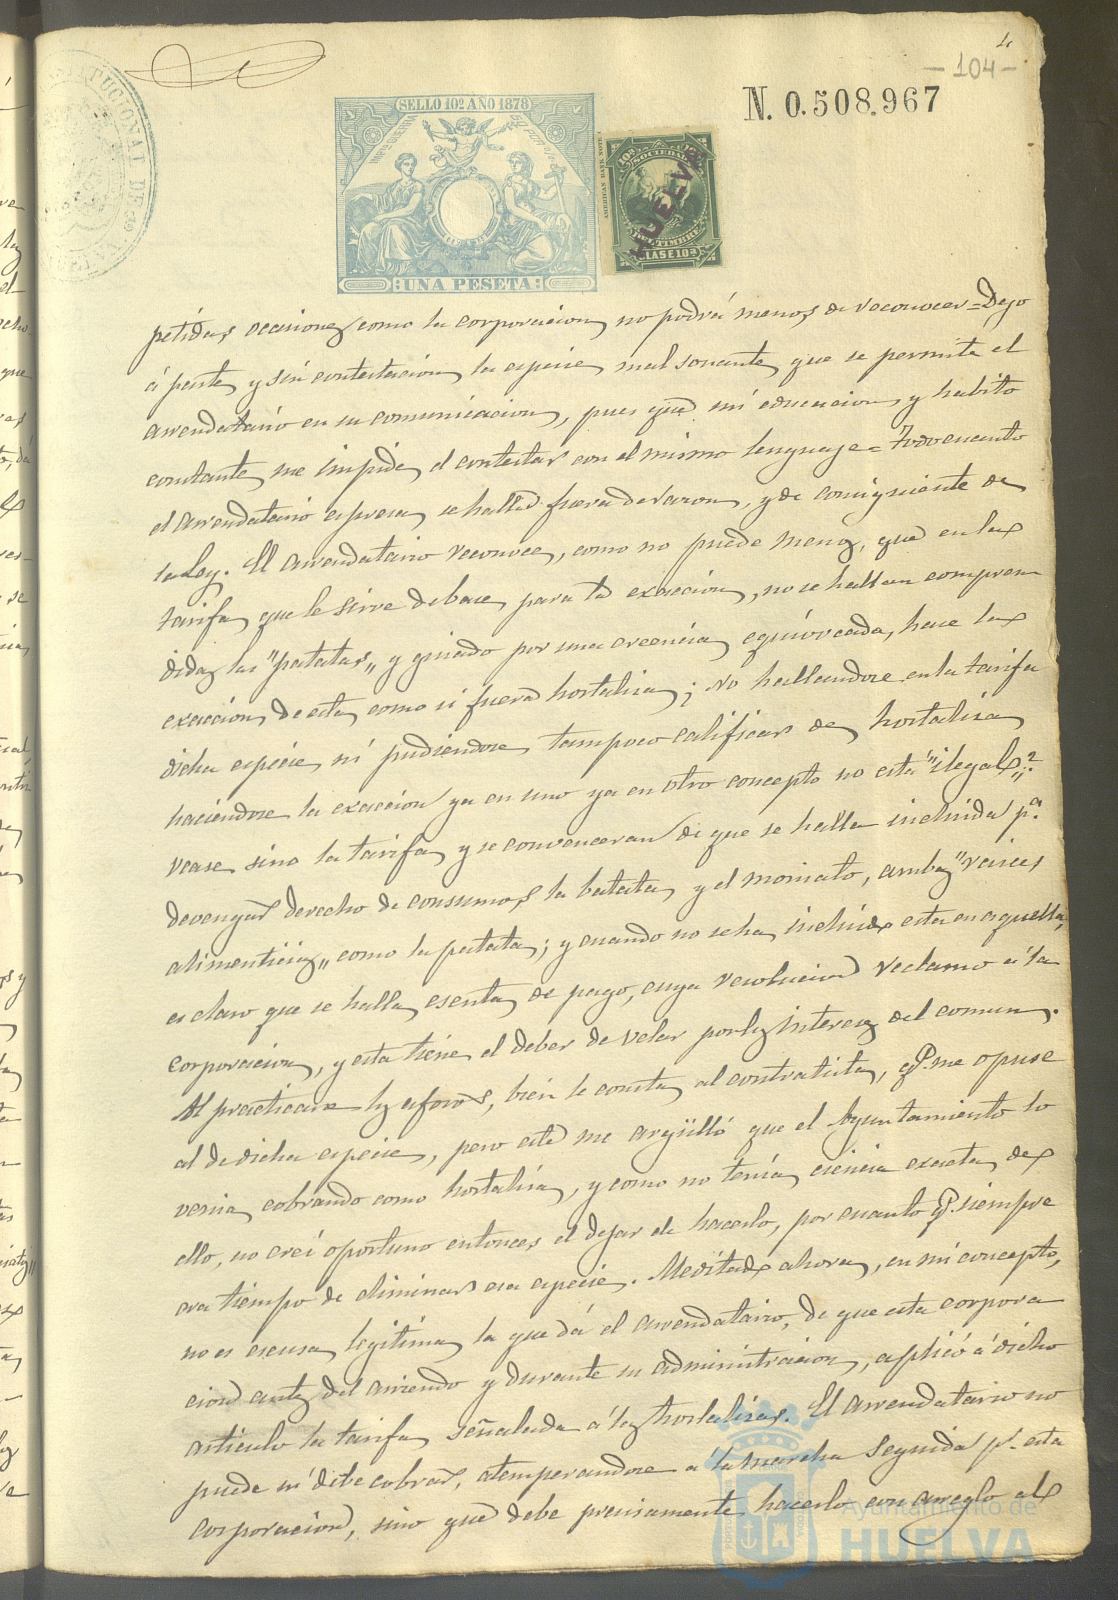 4
-104-
N. 0.508.967
SELLO 10º AÑO 1878
UNA PESETA
AMERICAN BANK NOTE
10ª SOCIEDAD
HUELVA
DEL TIMBRE
CLASE 10ª
petidas ocasiones como la corporacion no podrá menos de reconocer = Dejo
á parte y sin contestacion la especie mal sonante que se permite el
arrendatario en su comunicacion, pues que mi educacion y habito
constante me impide el contestar con el mismo lenguaje = Todo cuanto
el arrendatario espresa se halla fuera de razon, y de consiguiente de
la Ley. El arrendatario reconoce, como no puede menos, que en la
tarifa que le sirve de base para la exaccion, no se hallan compren
didas las "patatas" y guiado por una creencia equivocada, hace la
exaccion de esta como si fuera hortaliza; No hallandose en la tarifa
dicha especie ni pudiendose tampoco calificar de hortaliza
haciendose la exaccion ya en uno ya en otro concepto no está "ilegal"?
vease sino la tarifa y se convenceran de que se halla incluida pª
devengar derecho de consumos la batata y el moniato, ambas "raices
alimenticias" como la patata; y cuando no se ha incluido esta en aquella,
es claro que se halla esenta de pago, cuya resolucion reclamo á la
corporacion, y esta tiene el deber de velar por los intereses del comun.
Al practicarse los aforos, bien le consta al contratista, q.e me opuse
al de dicha especie, pero este me argülló que el Ayuntamiento lo
venia cobrando como hortaliza, y como no tenia ciencia exacta de
ello, no creí oportuno entonces el dejar de hacerlo, por cuanto q.e siempre
era tiempo de eliminar esa especie. Meditado ahora, en mi concepto,
no es escusa legítima la que dá el arrendatario, de que esta corpora
cion antes del arriendo y durante su administracion, aplicó á dicho
articulo la tarifa señalada á las hortalizas. El arrendatario no
puede ni debe cobrar, atemperandose á la marcha seguida p.r esta
corporacion, sino que debe precisamente hacerlo con arreglo al
Ayuntamiento de
HUELVA